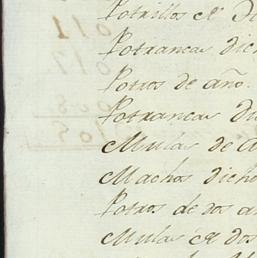 Potrillos de
Potrancas dich
Potros de año.
Potrancas di
Mulas de a
Machos dicho
Potros de dos a
Mulas de dos